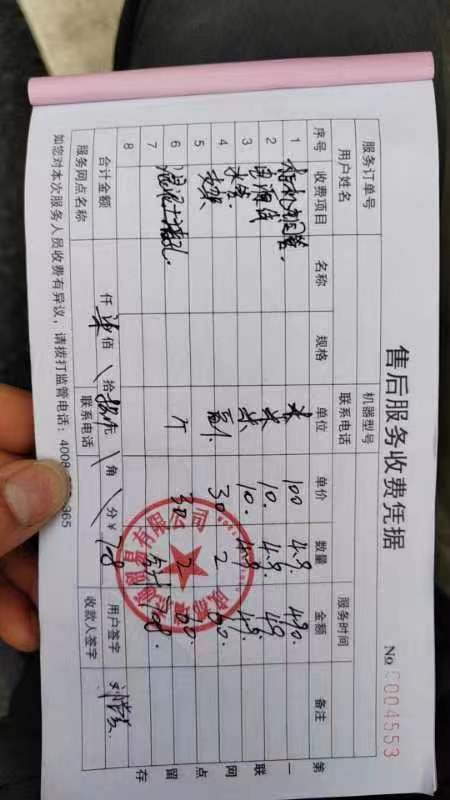 售后服务收费凭据
No 0004553
服务订单号 机器型号 服务时间
用户姓名 联系电话
序号 收费项目 名称 规格 单位 单价 数量 金额 备注
1 米 100 4.9 490
2 电源线 米 10 4.9 49
3 水管 米 10 4.9 49
4 支架 副 30 2 60
5
6 混泥土打孔 个 30 2 60
7 合计 708
8
合计金额 仟 柒 佰 拾 捌 元 角 分 ¥ 708 用户签字
服务网点名称 联系电话 收款人签字
如您对本次服务人员收费有异议，请拨打监管电话：4008 365
第一联 网点留存